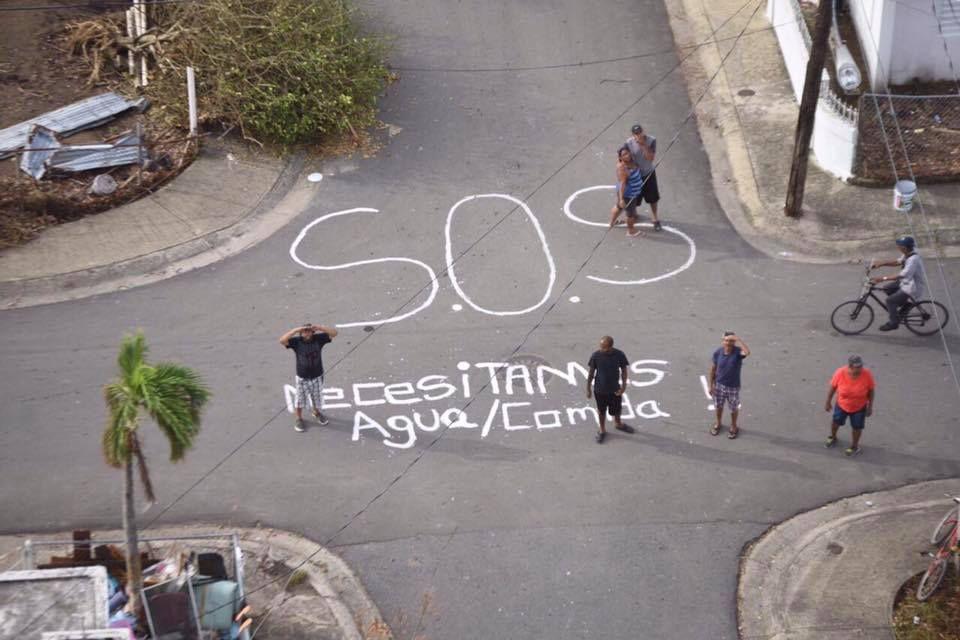 S.O.S
NecesiTAMOS !
Agua/Comida